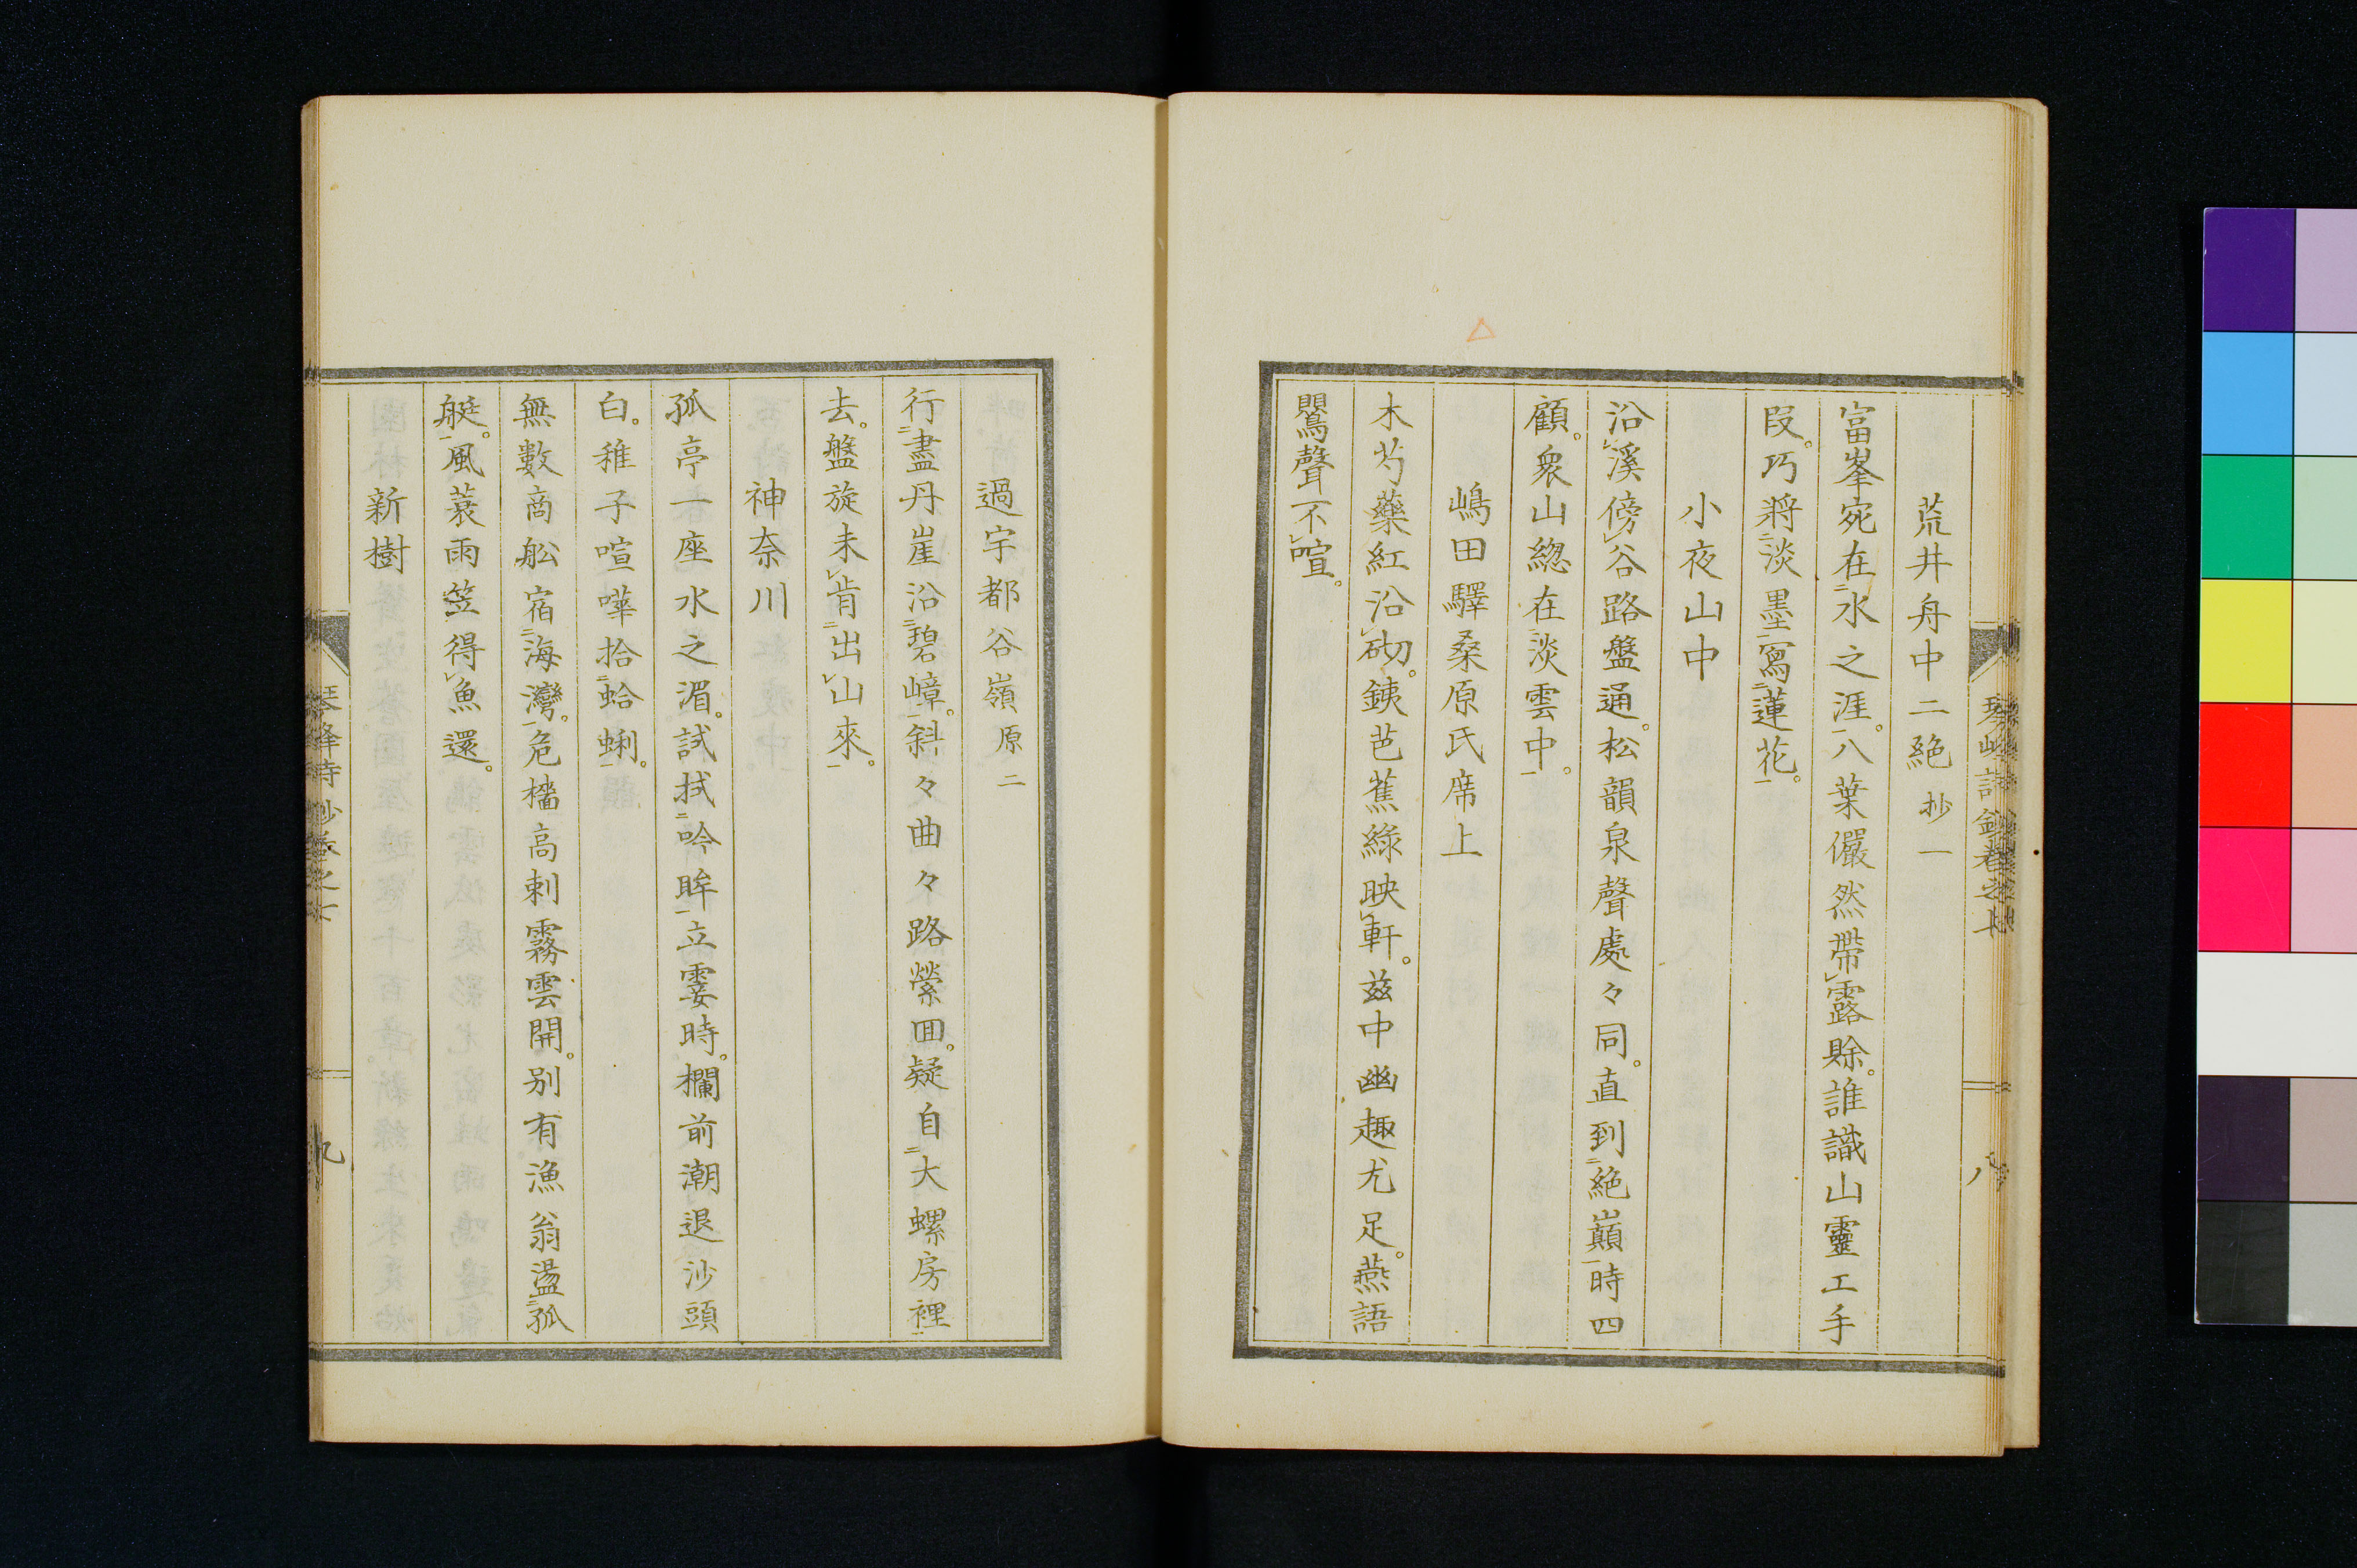 荒井舟中二絶 抄一
富峯宛在二水之涯一。八葉儼然帶レ露賒。誰識山靈工手
段。巧將二淡墨一寫二蓮花一。
小夜山中
沿レ溪傍レ谷路盤通。松韻泉聲處々同。直到二絶巔一時四
顧。衆山緫在二淡雲中一。
嶋田驛桑原氏席上
木芍藥紅沿レ砌。銕芭蕉綠映レ軒。茲中幽趣尤足。燕語
鸎聲不レ喧。
八
過宇都谷嶺 原二
行二盡丹崖一沿二碧嶂一。斜々曲々路縈囬。疑自二大螺房裡一
去。盤旋未レ肯二出レ山來一。
神奈川
孤亭一座水之湄。試拭二吟眸一立霎時。欄前潮退沙頭
白。稚子喧嘩拾二蛤蜊一。
無數商舩宿二海灣一。危檣高刺霧雲開。別有漁翁盪二孤
艇一。風蓑雨笠得レ魚還。
新樹
九